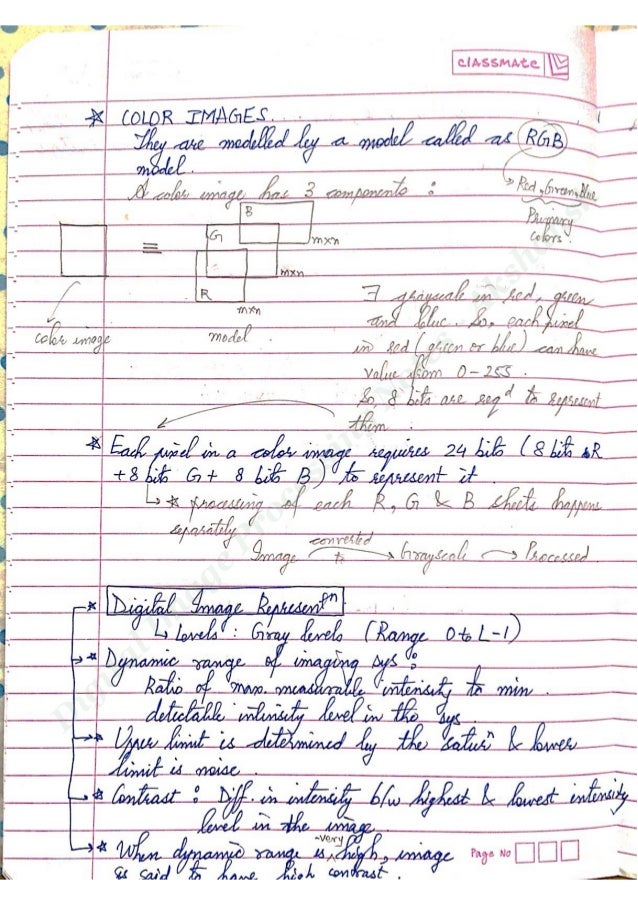 classmate
* COLOR IMAGES.
They are modelled by a model called as RGB
model.
→ Red, Green, Blue
Primary
colors.
A color image has 3 components :
B
G
R
mxn
mxn
mxn
≡
color image
model.
∃ grayscale in red, green
and blue. So, each pixel
in red (green or blue) can have
value from 0-255.
So, 8 bits are reqd to represent
them.
* Each pixel in a color image requires 24 bits (8 bits R
+8 bits G + 8 bits B) to represent it.
↳ * processing of each R, G & B sheets happens
separately
Image converted → Grayscale → Processed.
* Digital Image Representn
↳ Levels : Gray levels (Range 0 to L-1)
* Dynamic range of imaging sys :
Ratio of max. measurable intensity to min.
detectable intensity level in the sys.
* Upper limit is determined by the saturn & lower
limit is noise.
* Contrast : Diff. in intensity b/w highest & lowest intensity
level in the image
* When dynamic range is very high, image
is said to have high contrast.
Page No